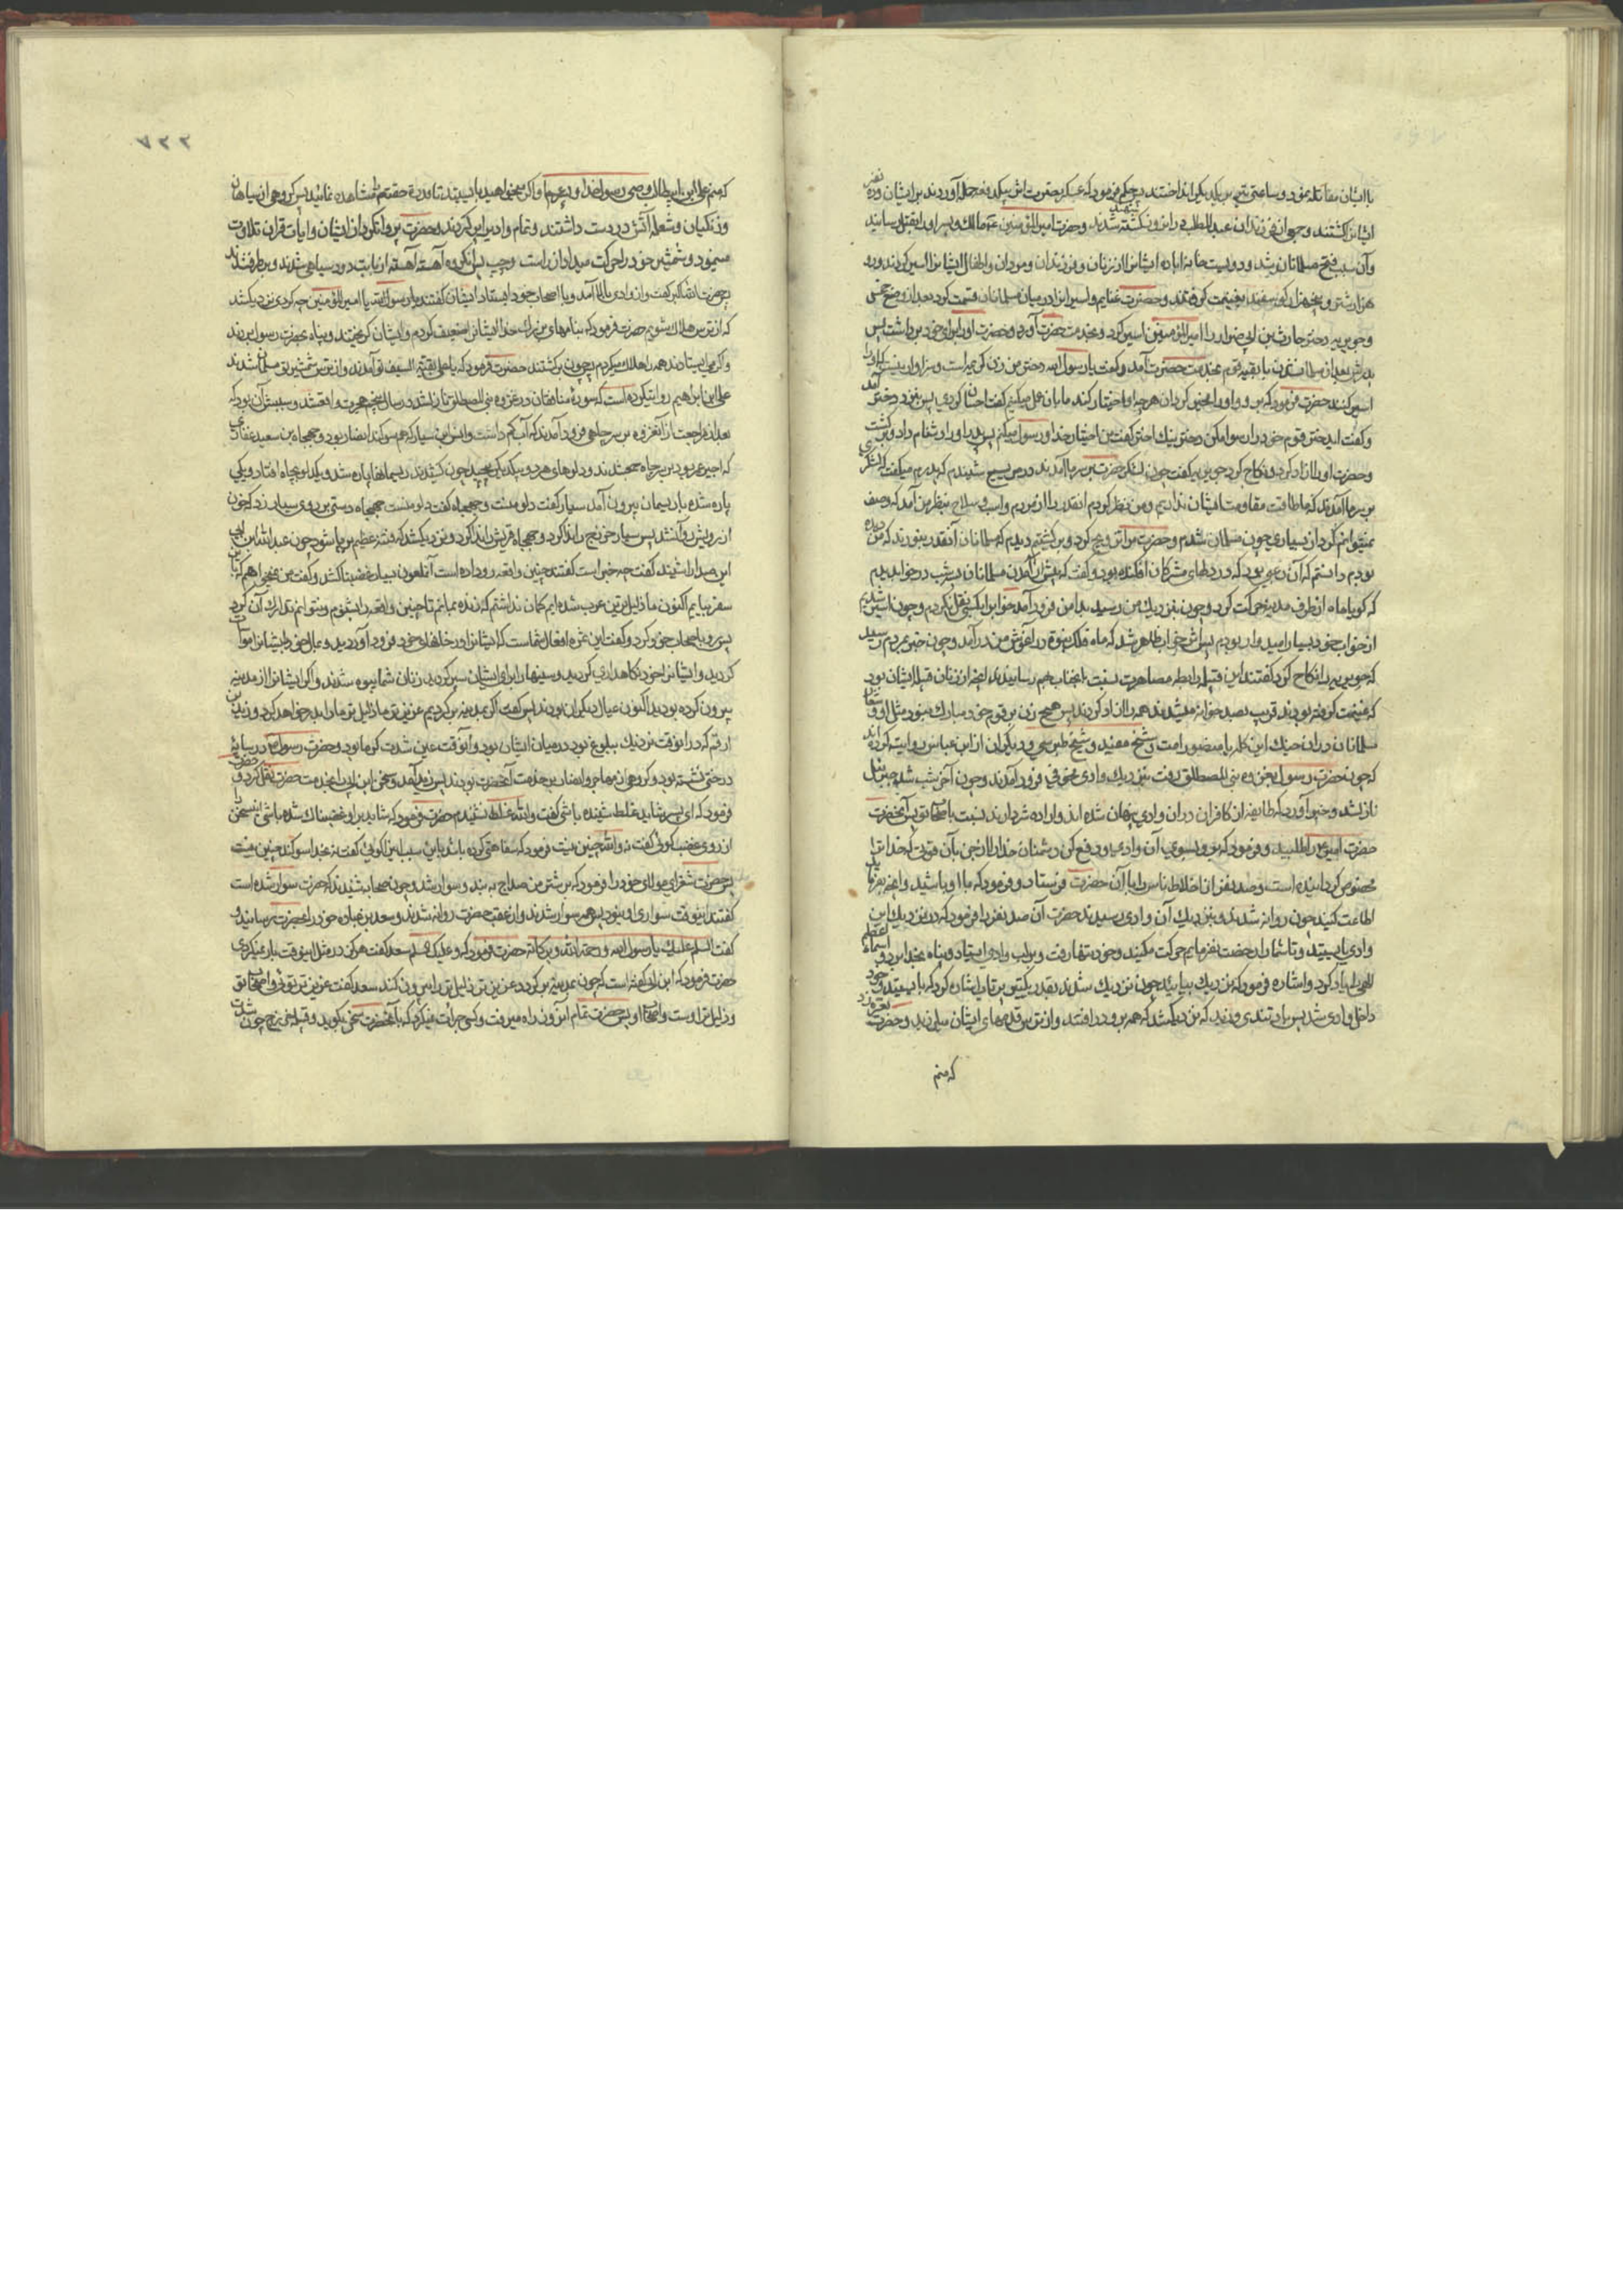 با ایشان مقاتله نمود و ساعتی تیر بر یکدیگر انداختند پس حکم فرمود که عسکر حضرت اش بیکدفعه حمله آوردند بر ایشان و ده نفر
ایشانرا کشتند و جمعی از فرزندان عبدالمطلب در انروز کشته شدند و حضرت امیرالمؤمنین ع مالک و پسر او را بقتل رسانید
و آن سبب فتح مسلمانان شد و دویست خانه اباده ایشانرا از زنان و فرزندان و مردان و اطفال ایشانرا اسیر کردند و دو
هزار شتر و پنجهزار گوسفند بغنیمت گرفتند و حضرت غنایم و اسیرانرا در میان مسلمانان قسمت کرد بعد از وضع خمس
و جویریه دختر حارث بن ابی ضرار را امیرالمؤمنین اسیر کرد و بخدمت حضرت آورد و حضرت او را برای خود برداشت پس
پدرش بعد از مسلمان شدن با بقیه قوم بخدمت حضرت آمد و گفت یا رسول الله دختر من زن کریمه است و سزاوار نیست که او را
اسیر کنند حضرت فرمود که برو و او را مخیر گردان هرچه او اختیار کند ما بان عمل میکنیم گفت احسان کردی پس بنزد دختر آمد
و گفت ایدختر قوم خود را رسوا مکن دختر نیک اختر گفت من اختیار خدا و رسول میکنم پس پدر او را دشنام داد و برگشت
و حضرت او را آزاد کرد و نکاح کرد جویریه گفت چون لشکر حضرت بر سر ما آمدند در مریسیع شنیدم که پدرم میگفت لشکری
بر سر ما آمدند که ما طاقت مقاومت ایشان نداریم و من نظر کردم انقدر از مردم و اسب و سلاح بنظر من آمد که وصف
نمیتوانم کرد از بسیاری چون مسلمان شدم و حضرت مرا تزویج کرد و برگشتیم دیدم که مسلمانان آنقدر نبودند که من دیده
بودم دانستم که آن رعبی بود که در دلهای مشرکان افکنده بود و گفت که پیش از آمدن مسلمانان بسه شب در خواب دیدم
که گویا ماه از طرف مدینه حرکت کرد و چون بنزدیک من رسید بدامن من فرود آمد خواب را بکسی نقل نکردم و چون اسیر شدیم
از خواب خود بسیار امیدوار بودم پس اثر خواب ظاهر شد که ماه فلک نبوت در آغوش من در آمد و چون خبر بمردم رسید
که جویریه را نکاح کرد گفتند این قبیله رابطه مصاهرت نسبت بانجناب بهم رسانیدند انچه از زنان قبیله ایشان بود
که غنیمت گرفته بودند قریب بصد خوانه میشدند همه را ازاد کردند پس هیچ زن بر قوم خود مبارک نبود مثل او و شعار
مسلمانان در ان جنک این کلمه یا منصور امت و شیخ مفید و شیخ طبرسی و دیگران از ابن عباس روایت کرده اند
که چون حضرت رسول بغزوه بنی المصطلق رفت بنزدیک وادی مخوفی فرود آمدند و چون آخر شب شد جبرئیل
نازل شد و خبر آورد که طایفه از کافران در ان وادی پنهان شده اند و اراده شر دارند نسبت باصحاب تو پس آنحضرت
حضرت امیر را طلبید و فرمود که برو بسوی آن وادی و دفع کن دشمنان خدا را از جن بآن قوتی که خدا ترا
مخصوص گردانیده است و صد نفر از اخلاط ناس را با آن حضرت فرستاد و فرمود که با او باشید و انچه بفرماید
اطاعت کنید چون روانه شدند و بنزدیک آن وادی رسیدند حضرت آن صد نفر را فرمود که در نزدیک این
وادی بایستید و تا شما را رخصت نفرمایم حرکت مکنید و خود تنها رفت و بر لب وادی ایستاد و پناه بخدا برد و اسماء اعظم
الهی را یاد کرد و اشاره فرمود که نزدیک بیائید چون نزدیک شدند بقدر یک تیر پرتاب اشاره کرد که بایستید و خود
داخل وادی شد پس باد تندی وزید که نزدیک شد که همه برو در افتند و از ترس قدمهای ایشان میلرزید و حضرت نعره زد
که منم
۷۳۳
که منم علی ابن ابیطالب وصی رسول خدا و پسر عم او اگر میخواهید بایستید تا قدرت حقتعالی مشاهده نمائید پس گروهی از سیاهان
و زنکیان و شعله آتش در دست داشتند و تمام وادی را پر کردند و حضرت پروا نکرد از ایشان و ایات قران تلاوت
مینمود و شمشیر خود را حرکت میداد از راست و چپ پس آنگروه آهسته آهسته از بابت دود سیاهی شدند و برطرف شدند
پس حضرت الله اکبر گفت و از وادی بالا آمد و با اصحاب خود ایستاد ایشان گفتند یا امیرالمؤمنین چه کردی نزدیک شد
که از ترس هلاک شویم حضرت فرمود که بنامهای بزرك خدا ایشانرا ضعیف کردم و ایشان گریختند و پناه بحضرت رسول بردند
و اگر می ایستادند همه را هلاک میکردم پس چون برگشتند حضرت فرمود که یا علی بقیه السیف تو آمدند و از ترس شمشیر تو مسلمان شدند
علی ابن ابراهیم روایت کرده است که سوره منافقان در غزوه بنی المصطلق نازل شد در سال پنجم هجرت واقعشد و سببش آن بود که
بعد از مراجعت از آنغزوه بر سر چاهی فرود آمدند که آب کم داشت و انس بن سیار که هم سوکند انصار بود و جهجاه بن سعید غفاری
که اجیر عمر بود بر سر چاه جمعشدند و دلوهای هر دو بیکدیگر پیچید چون کشیدند ریسمانها پاره شد و یکدلو بچاه افتاد و یکی
پاره شده با ریسمان بیرون آمد سیار گفت دلو منست و جهجاه گفت دلو منست جهجاه دستی بر روی سیار زد که خون
از رویش روان شد پس سیار خزرج را ندا کرد و جهجاه قریش را ندا کرد و نزدیک شد که فتنه عظیم برپا شود چون عبدالله ابن ابی
این صدا را شنید گفت چه خبر است گفتند چنین واقعه رو داده است آنملعون بسیار غضبناک شد و گفت من نمیخواهم که باین
سفر بیایم اکنون ما ذلیل ترین عرب شده ایم گمان نداشتم که زنده بمانم تا چنین واقعه را بشنوم و نتوانم تدارک آن کرد
پس رو باصحاب خود کرد و گفت این ثمره افعال شماست که ایشانرا در خانهای خود فرود آوردید و بمال خود با ایشان مواسات
کردید و ایشانرا بخود نکاهداری کردید و سینهارا برای ایشان سپر کردید زنان شما بیوه شدند و اگر ایشانرا از مدینه
بیرون کرده بودید اکنون عیال دیگران بودند پس گفت اگر بمدینه برگردیم عزیزتر ما ذلیل تر ما را بدر خواهد کرد و زید بن
ارقم که در انوقت نزدیک ببلوغ بود در میان ایشان بود و آنوقت عین شدت گرما بود و حضرت رسول در سایه
درختی نشسته بود و گروهی از مهاجر و انصار در خدمت آنحضرت بودند پس زید آمد و سخن ابن ابی را بخدمت حضرت نقل کرد و حضرت
فرمود که ای پسر شاید غلط شنیده باشی گفت والله غلط نشنیدم حضرت فرمود که شاید بر او غضبناک شده باشی و این سخن را
از روی غضب گوئی گفت نه والله چنین نیست فرمود که سفاهتی کرده باشد باین سبب این گوئی گفت نه بخدا سوکند چنین نیست
پس حضرت شقران مولای خود را فرمود که بر شتر من جهاز به بند و سوار شد و چون صحابه شنیدند که حضرت سوار شده است
گفتند اینوقت سواری او نبود پس همه سوار شدند و از عقب حضرت روانه شدند و سعد بن عباده خود را بحضرت رسانید و
گفت السلام علیک یا رسول الله و رحمة الله و برکاته حضرت فرمود که و علیک السلم سعد گفت هرگز در مثل اینوقت بار نمیکردی
حضرت فرمود که ابن ابی گفته است که چون بمدینه برگردد عزیزتر ذلیل تر را بیرون کند سعد گفت عزیزتر توئی و اصحاب تو
و ذلیل تر اوست و اصحاب او پس حضرت تمام آنروز راه میرفت و کسی جرأت نمیکرد که با آنحضرت سخن بگوید و قبیله خزرج چون